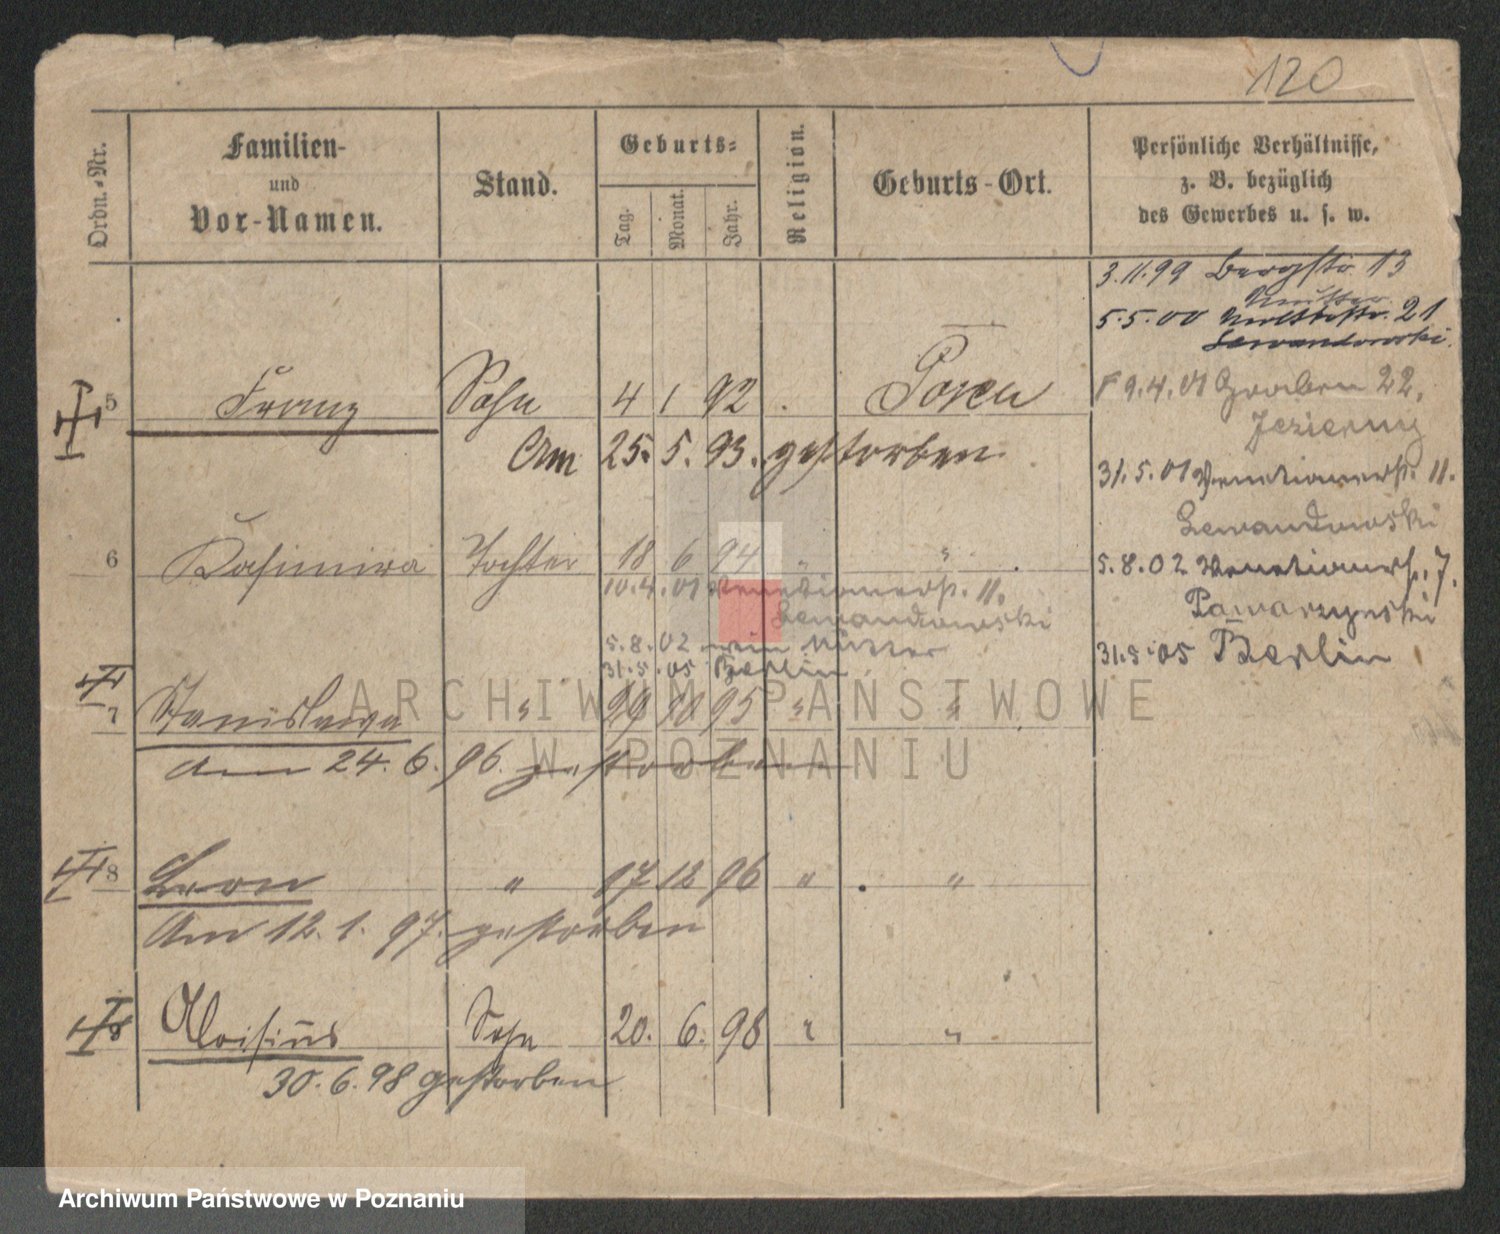 120
Ordn.-Nr.
Familien-
und
Vor-Namen.
Stand.
Geburts-
Tag.
Monat.
Jahr.
Religion.
Geburts-Ort.
Persönliche Verhältnisse,
z. B. bezüglich
des Gewerbes u. s. w.
3.11.99 Bergstr. 13
Mutter
5.5.00 21
Lewandowski
5 Franz Sohn 4 1 92 Posen
Am 25. 5. 93. gestorben
9.4.01 Graben 22.
Jezierny
31.5.01 Venetianerst. 11.
Lewandowski
6 Kasimira Tochter 18 6 94 " "
10.4.01 Venetianerst. 11.
Lewandowski
5.8.02 Mutter
31.5.05 Berlin
5.8.02 Venetianerst. 7.
Pawarzynski
31.5.05 Berlin
7 Stanislawa " 29 10 95 " "
Am 24. 6. 96. gestorben
8 Leon " 17 12 96 " "
Am 12. 1. 97. gestorben
8 Aloisius Sohn 20. 6. 98 " "
30. 6. 98 gestorben
ARCHIWUM PAŃSTWOWE
W POZNANIU
Archiwum Państwowe w Poznaniu